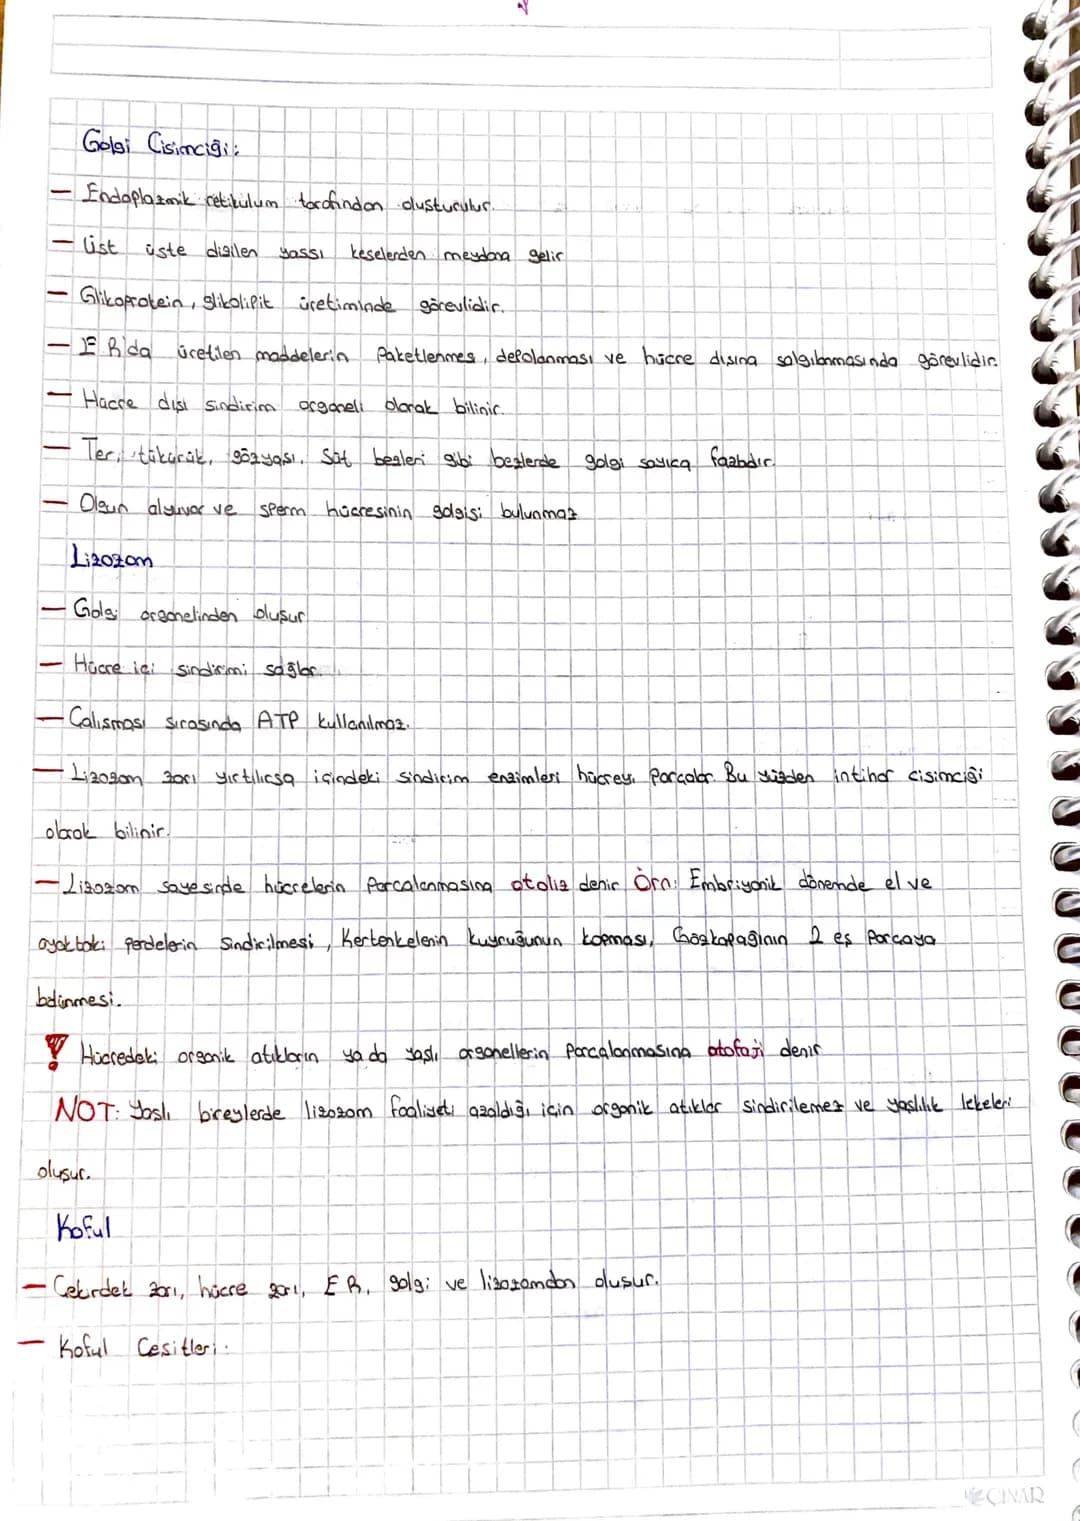 Golgi Cisimciği:
— Endoplazmik retikulum tarafından oluşturulur.
— Üst üste dizilen yassı keselerden meydana gelir
— Glikoprotein, glikolipit üretiminde görevlidir.
— E R'da üretilen maddelerin Paketlenmes, depolanması ve hücre dışına salgılanmasında görevlidir.
— Hücre dışı sindirim organeli olarak bilinir.
— Ter, tükürük, gözyaşı, Süt bezleri gibi bezlerde golgi sayıca fazladır.
— Olgun alyuvar ve sperm hücresinin golgisi bulunmaz
Lizozom
— Golgi organelinden oluşur
— Hücre içi sindirimi sağlar.
— Calısması sırasında ATP kullanılmaz.
— Lizozom zarı yırtılırsa içindeki sindirim enzimleri hücreyi Parçalar. Bu yüzden intihar cisimciği
olarak bilinir.
— Lizozom sayesinde hücrelerin Parcalanmasına otoliz denir Örn: Embriyonik dönemde el ve
ayaktaki perdelerin sindirilmesi, Kertenkelenin kuyruğunun kopması, Gözkapağının 2 eş Parcaya
bölünmesi.
! Hücredeki organik atıkların ya da yaşlı organellerin Parcalanmasına otofaji denir
NOT: Yaslı bireylerde lizozom faaliyeti azaldığı için organik atıklar sindirilemez ve yaşlılık lekeleri
oluşur.
Koful
— Cekirdek zarı, hücre zarı, E R, golgi ve lizozomdan oluşur.
— Koful Cesitleri:
ÇINAR